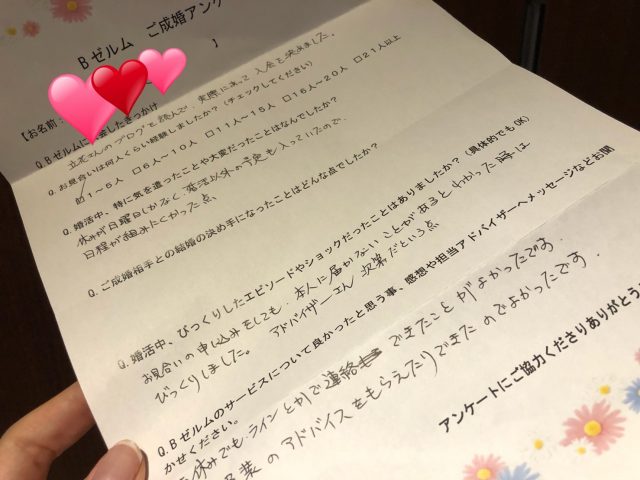 Bゼルム ご成婚アンケ
】
【お名前：
Q.Bゼルムに
会したきっかけ
立花さんのブログを読んで、実際に会って入会を決めました。
Q.お見合いは何人くらい経験しましたか？（チェックしてください）
☑1～5人 □6人～10人 □11人～15人 □16人～20人 □21人以上
Q.婚活中、特に気を遣ったことや大変だったことはなんでしたか？
休みが日曜日しかなく、婚活以外の予定も入っていたので、
日程が組みにくかった点
Q.ご成婚相手との結婚の決め手になったことはどんな点でしたか？
Q.婚活中、びっくりしたエピソードやショックだったことはありましたか？（具体的でもOK）
お見合いの申し込みをしても、本人に届かないことがあるとわかった時は
びっくりしました。 アドバイザーさん次第だという点
Q.Bゼルムのサービスについて良かったと思う事、感想や担当アドバイザーへメッセージなどお聞
かせください。
休みでも、ラインとかで連絡できたことがよかったです。
装のアドバイスをもらえたりできたのでよかったです。
アンケートにご協力くださりありがとう